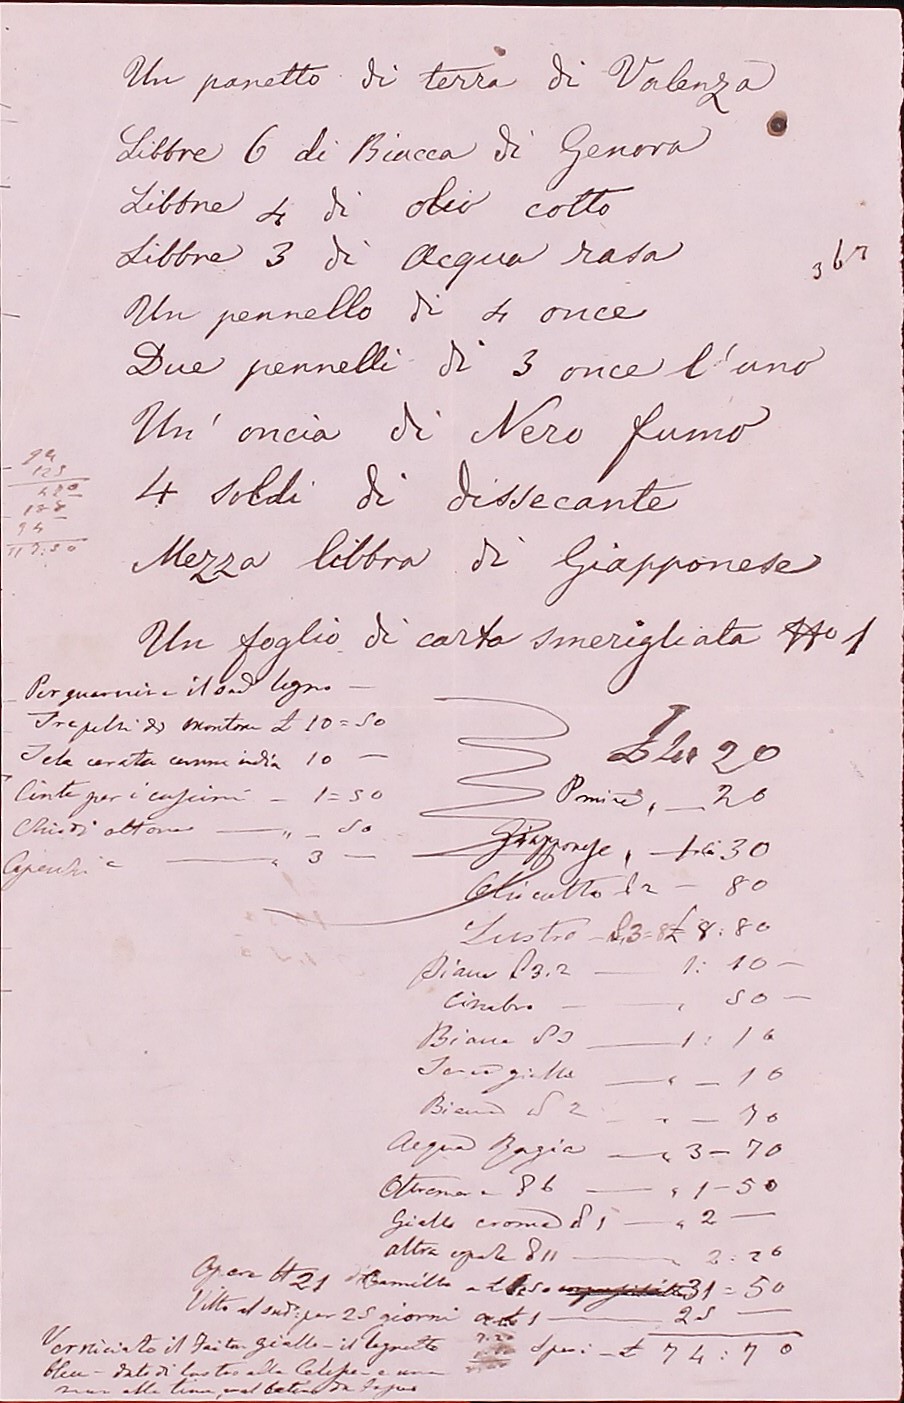 Un panetto di terra di Valenza
Libbre 6 di Biacca di Genova
Libbre 4 di olio cotto
Libbre 3 di Acqua rasa
367
Un pennello di 4 once
Due pennelli di 3 once l'uno
Un' oncia di Nero fumo
4 soldi di dissecante
Mezza libbra di Giapponese
Un foglio di carta smerigliata No 1
94
125
188
94
117:50
Per guarnire il legno —
Tre pelli di montone £ 10=50
Tela cerata 10 —
Cinte per i cuscini — 1=50
Chiodi ottone — „ — 50
— „ 3 —
20
„ — 20
Giapponese „ — 30
Olio cotto £ 2 — 80
Lustro £ 8:80
Biacca £ 3.2 — 1:10 —
Cinabro — „ 50 —
Biacca £ 3 — 1:10
Terra gialla — „ — 10
Biacca £ 2 — „ — 70
Acqua Ragia — „ 3 — 70
6 — „ 1 — 50
Giallo cromo — „ 2 —
altra — 2:20
Opera 21 di Camillo 31=50
Vitto al sud: per 25 giorni a £ 1 — 25 —
Spesi — £ 74:70
Verniciato il giallo — il legnetto
bleu — dato di lustro alla e una
mano alla